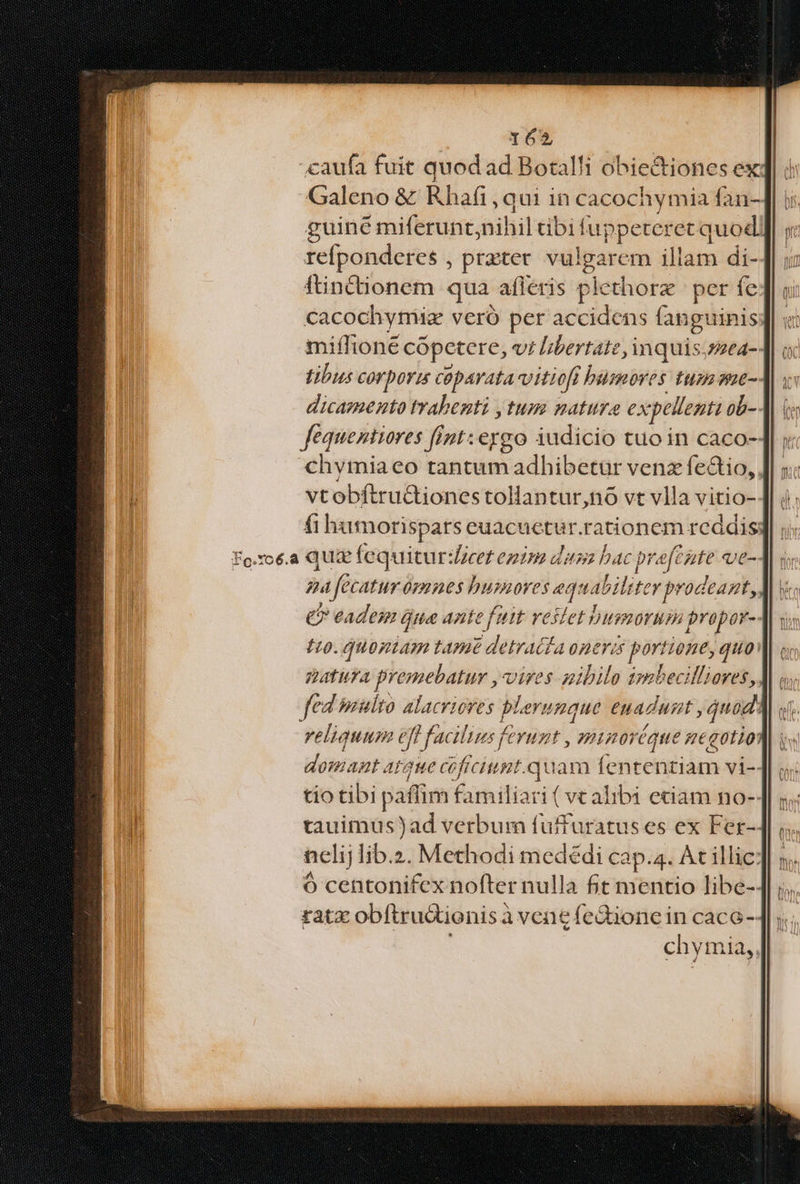 162
caufa fuit quod ad Botalli obiectiones ex
Galeno & Rhafi, qui in cacochymia fan-
guinē miferunt, nihil tibi fuppeteret quod
refponderes, præter vulgarem illam di-
ftinctionem qua afferis plethoræ per fe
cacochymiæ verò per accidens fanguinis
miffionē cōpetere, vt libertate, inquis. mea-
tibus corporis cōparata vitiofi humores tum me-
dicamento trahenti, tum natura expellenti ob-
fequentiores fint: ergo iudicio tuo in caco-
chymia eo tantum adhibetur venæ fectio,
vt obftructiones tollantur, nō vt vlla vitio-
fi humoris pars euacuetur. rationem reddis
Fo.106.a quæ fequitur: licet enim dum hac præfente ve-
na fecatur omnes humores æquabiliter prodeant,
& eadem quæ ante fuit reftet humorum propor-
tio. quoniam tamē detracta oneris portione, quo
natura premebatur, vires nihilo imbecilliores,
fed multo alacriores plerumque euadunt, quod
reliquum eft facilius ferunt, minoréque negotio
domant atque cōficiunt. quam fententiam vi-
tio tibi paffim familiari (vt alibi etiam no-
tauimus) ad verbum fuffuratus es ex Fer-
nelij lib.2. Methodi medēdi cap.4. At illic
ô centonifex nofter nulla fit mentio libe-
ratæ obftructionis à venę fectione in caco-
chymia,